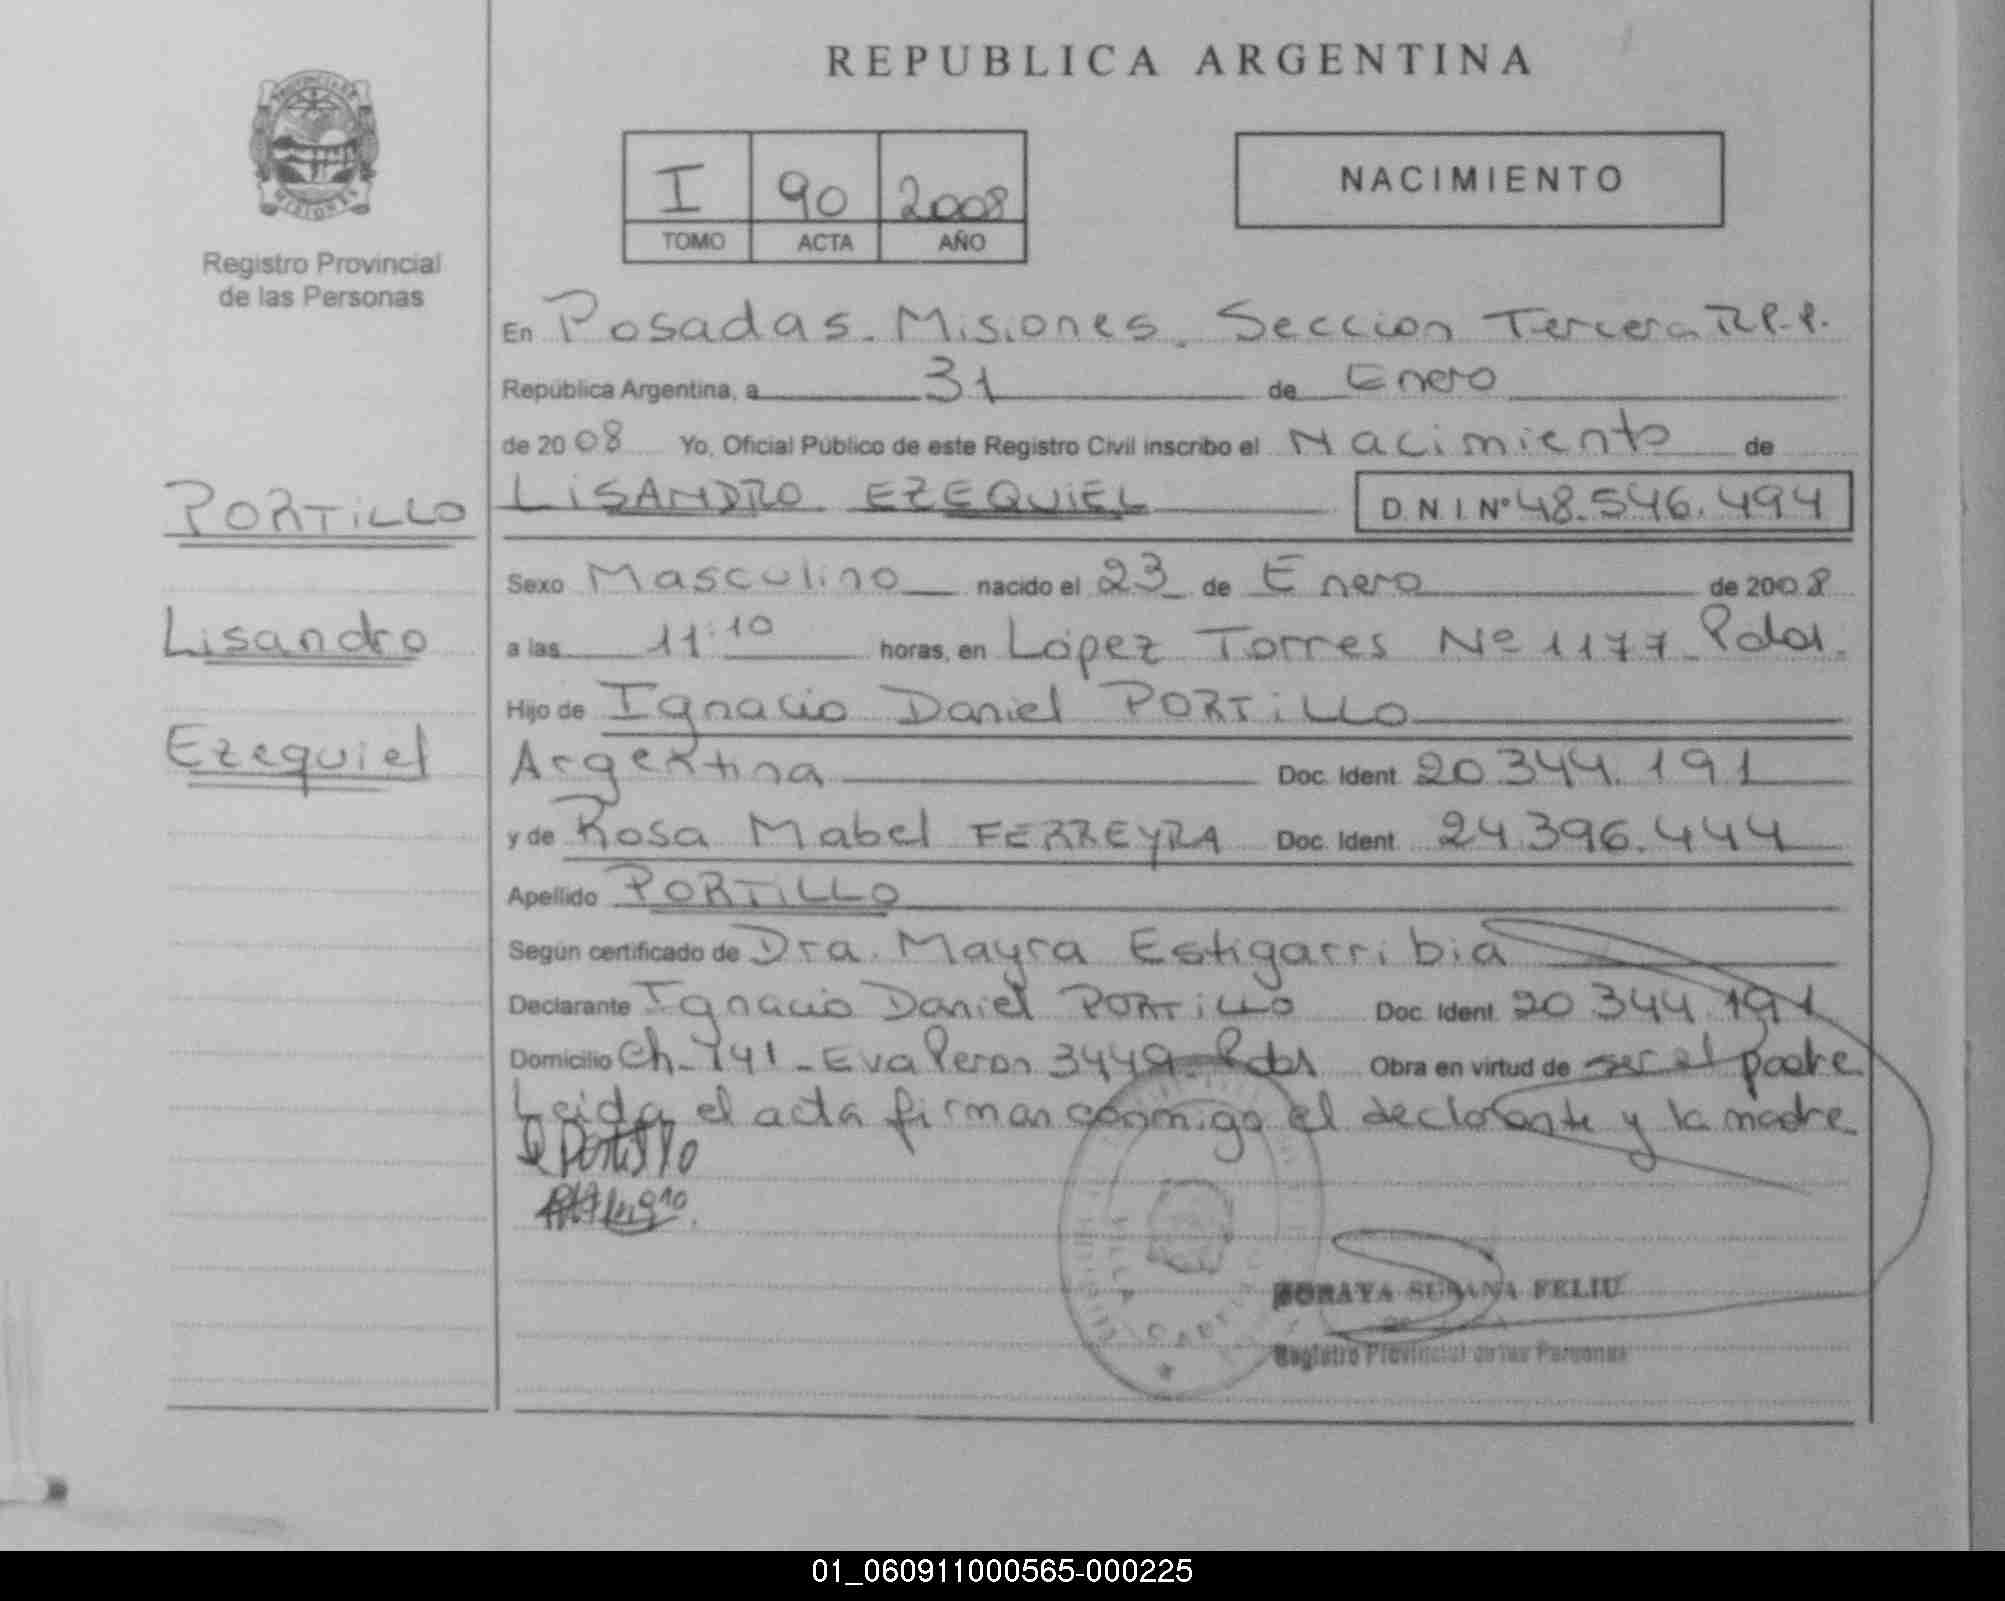 REPUBLICA ARGENTINA
PROVINCIA DE
MISIONES
Registro Provincial
de las Personas
I 90 2008
TOMO ACTA AÑO
NACIMIENTO
En Posadas. Misiones. Seccion Tercera R.P.P.
República Argentina, a 31 de Enero
de 2008 Yo, Oficial Público de este Registro Civil inscribo el Nacimiento de
PORTiLLO
LiSANDRO EZEQUiEL D.N.I. Nº 48.546.494
Sexo Masculino nacido el 23 de Enero de 2008
Lisandro
a las 11:10 horas, en López Torres Nº 1177 Pdas.
Hijo de Ignacio Daniel PORTiLLO
Ezequiel
Argentina Doc. Ident 20.344.191
y de Rosa Mabel FERREYRA Doc. Ident. 24.396.444
Apellido PORTiLLO
Según certificado de Dra. Mayra Estigarribia
Declarante Ignacio Daniel PORTiLLO Doc. Ident. 20.344.191
Domicilio Ch. 141 - Eva Peron 3449 - Pdas Obra en virtud de ser el padre
Leida el acta firman conmigo el declarante y la madre
Portillo
SORAYA SUSANA FELIU
Registro Provincial de las Personas
01_060911000565-000225